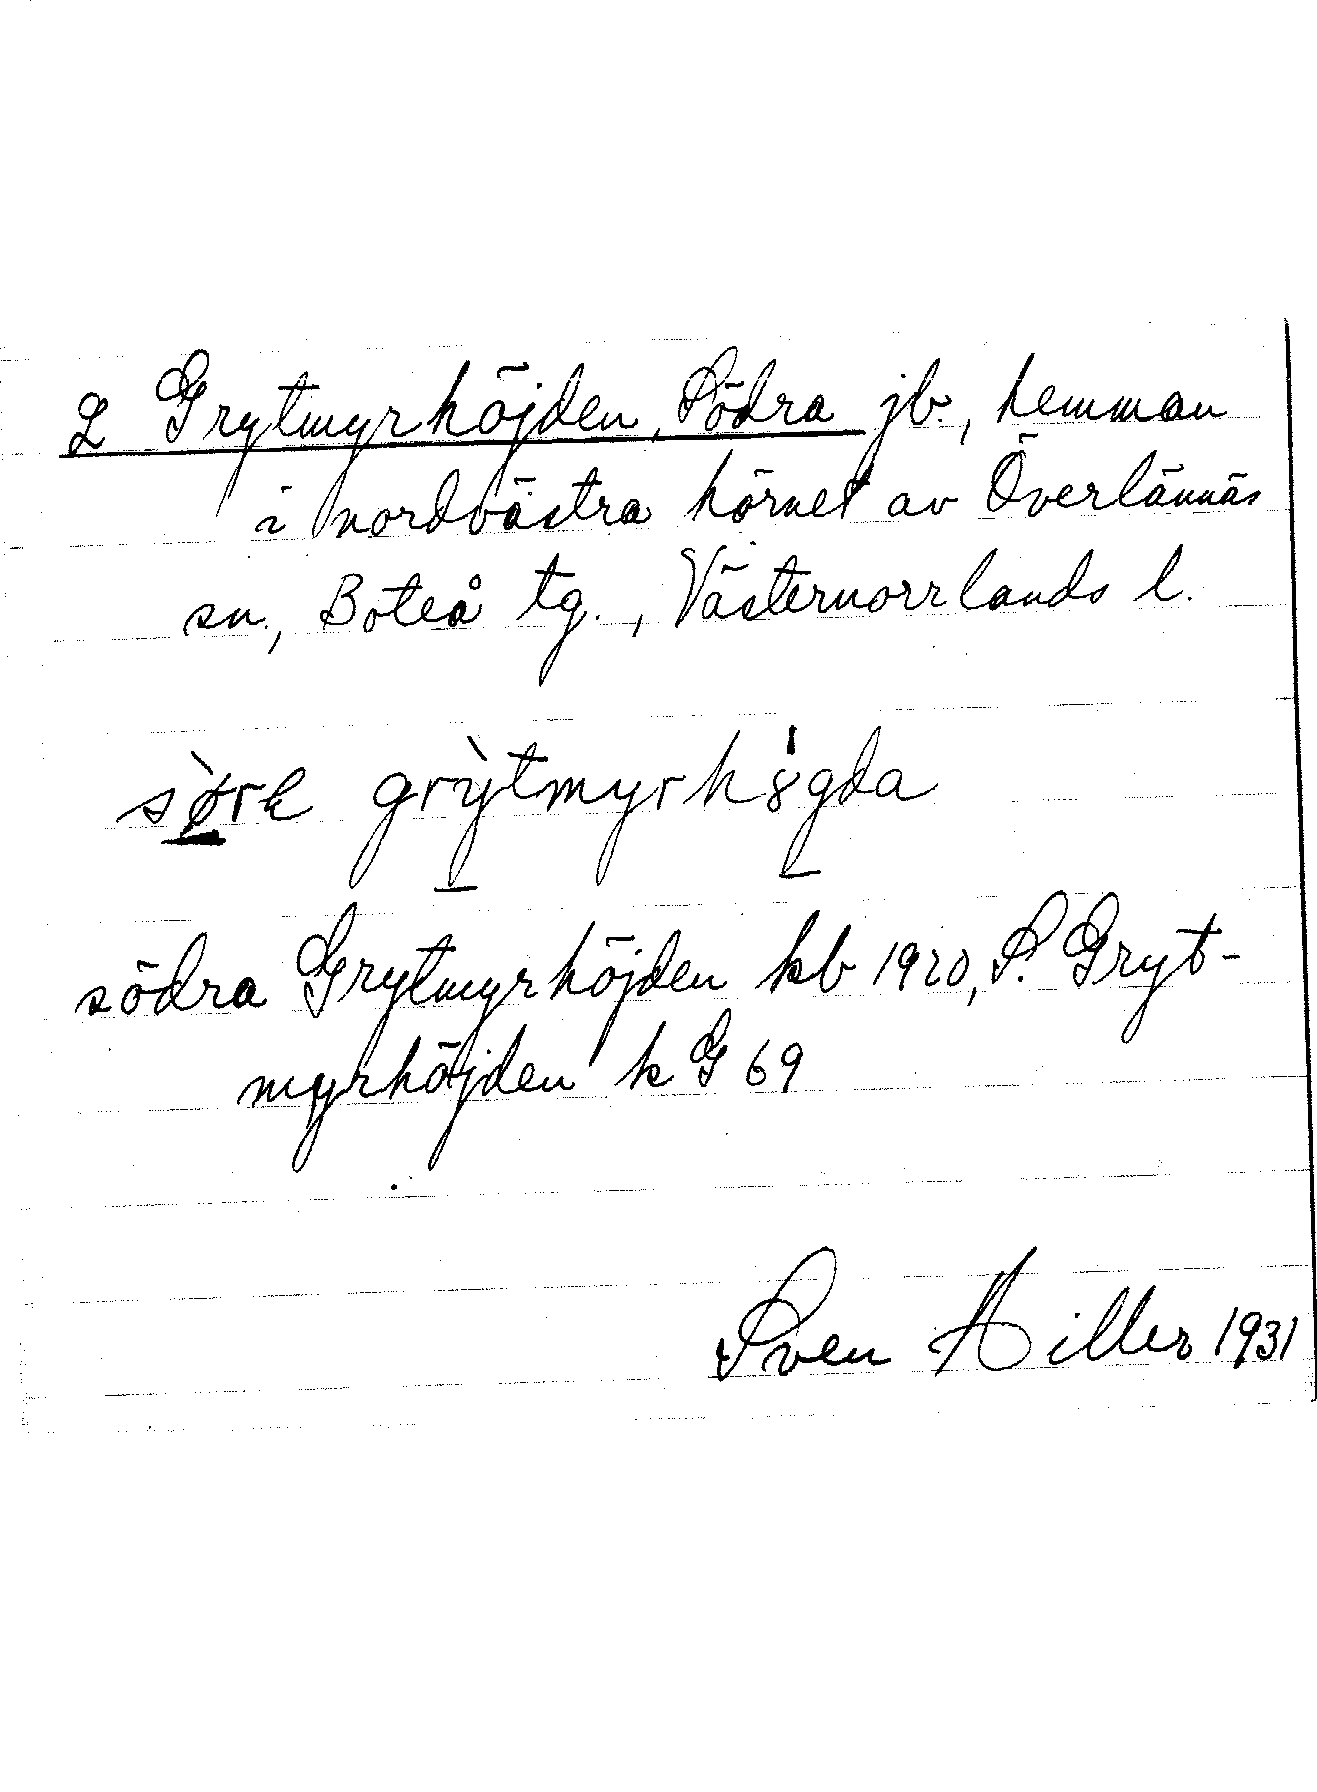 2 Grytmyrhöjden, Södra jb., hemman
i nordvästra hörnet av Överlännäs
sn., Boteå tg., Västernorrlands l.
sø̀re grỳtmyrhö́gda
södra Grytmyrhöjden kb 1920, S. Gryt-
myrhöjden k G 69
Sven Hiller 1931